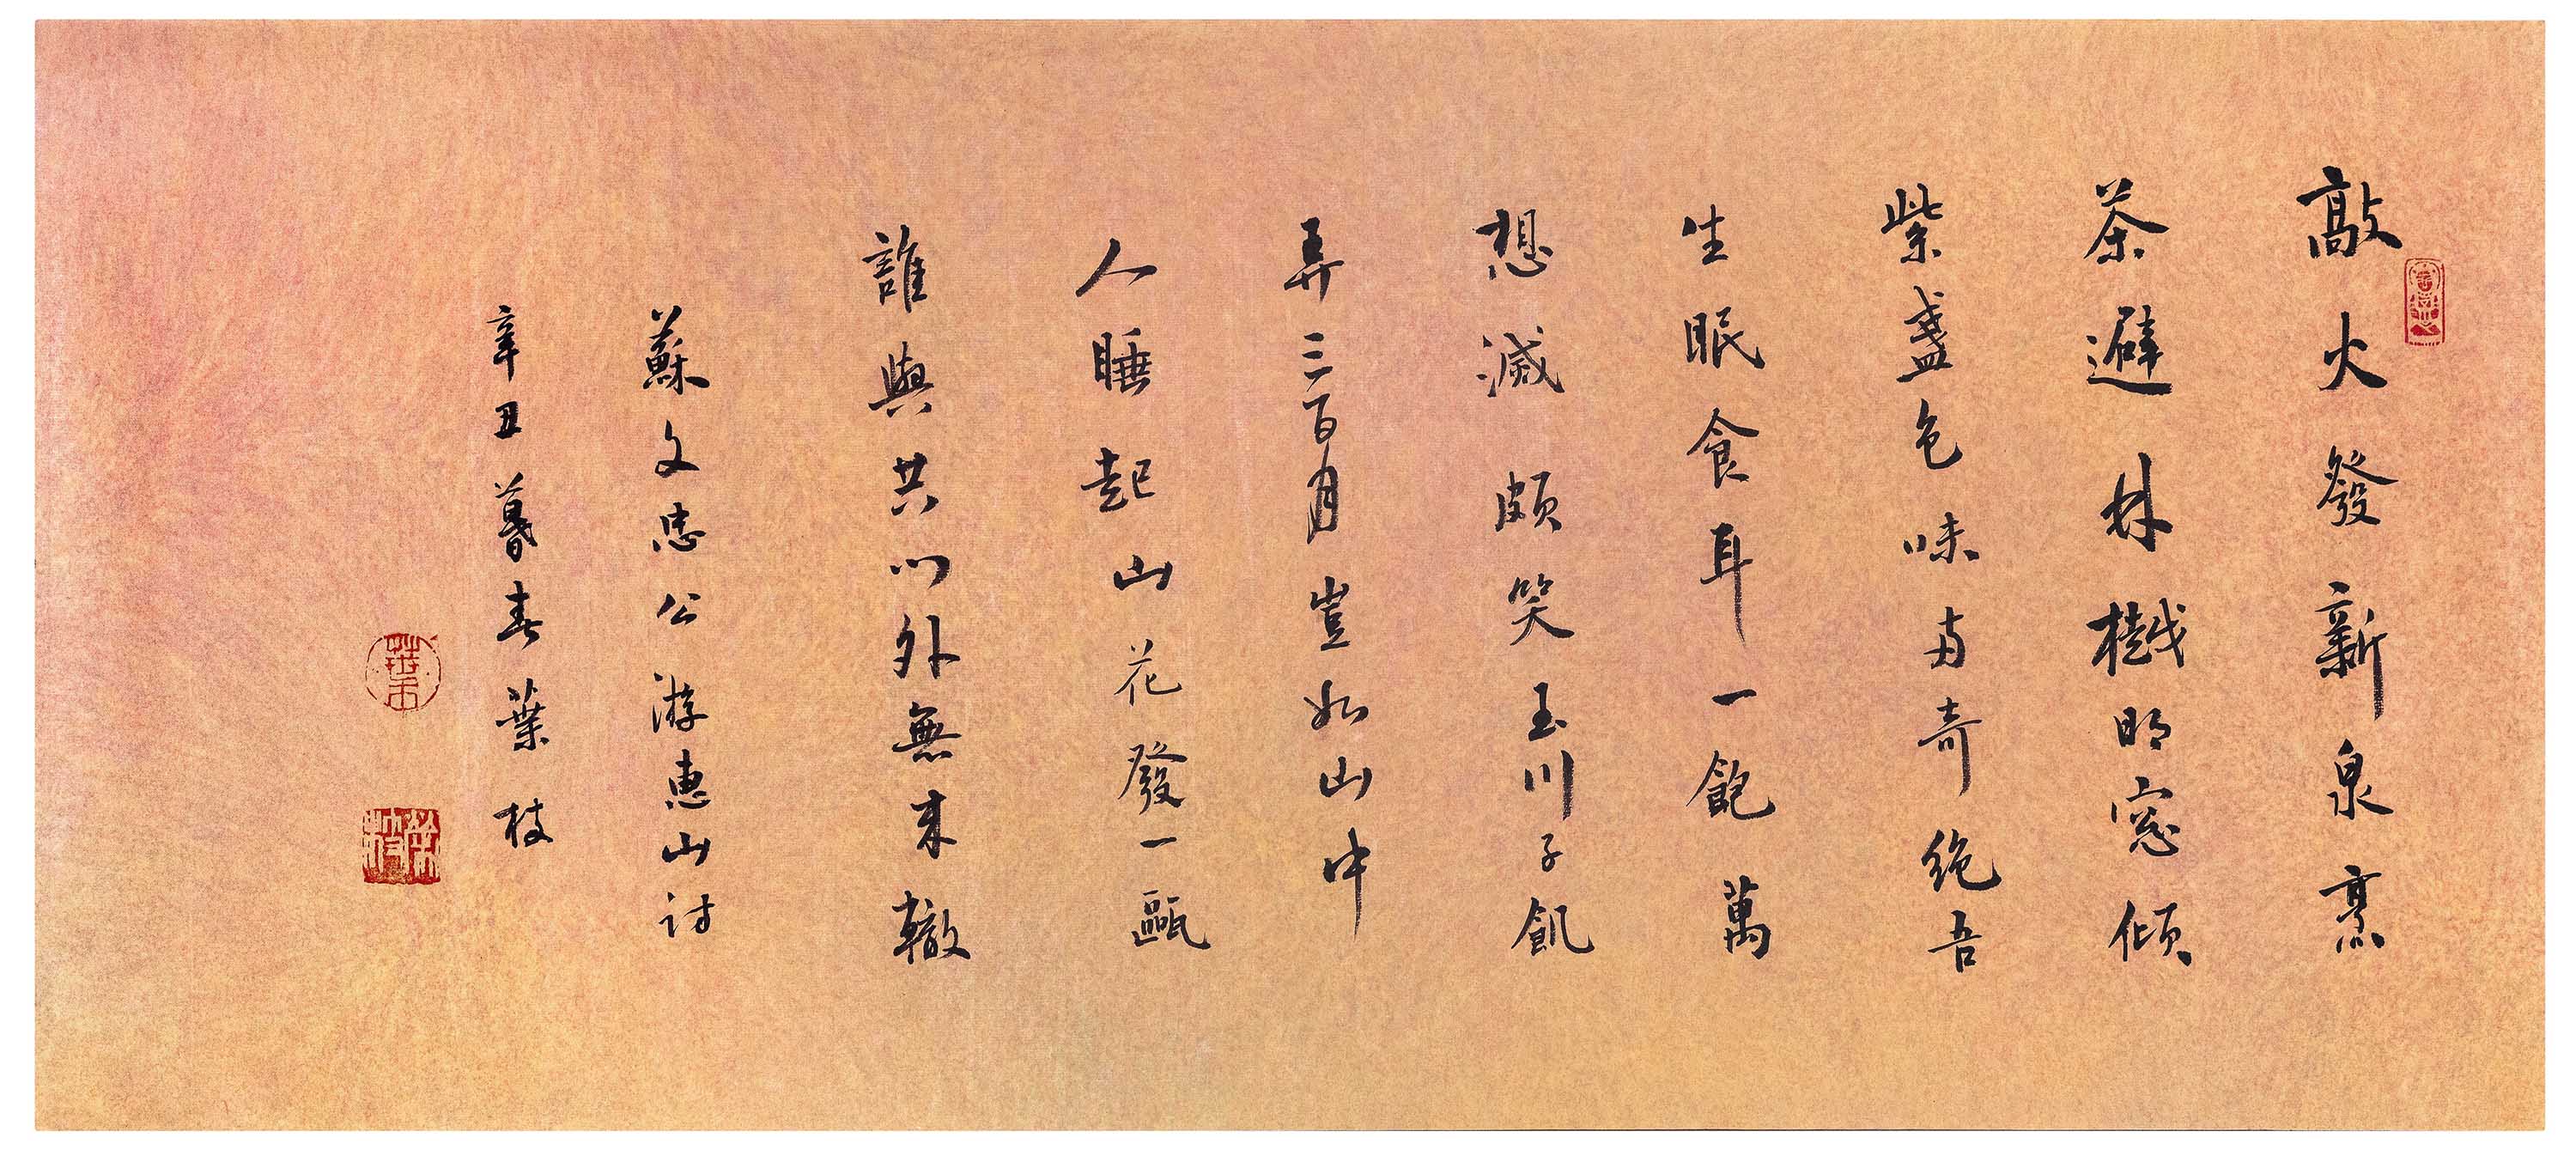 敲火發新泉烹
茶避林樾明窓傾
紫盞色味兩奇絕吾
生眠食耳一飽萬
想滅頗笑玉川子飢
弄三百月豈如山中
人睡起山花發一甌
誰與共門外無來轍
蘇文忠公游惠山詩
辛丑暮春葉枝